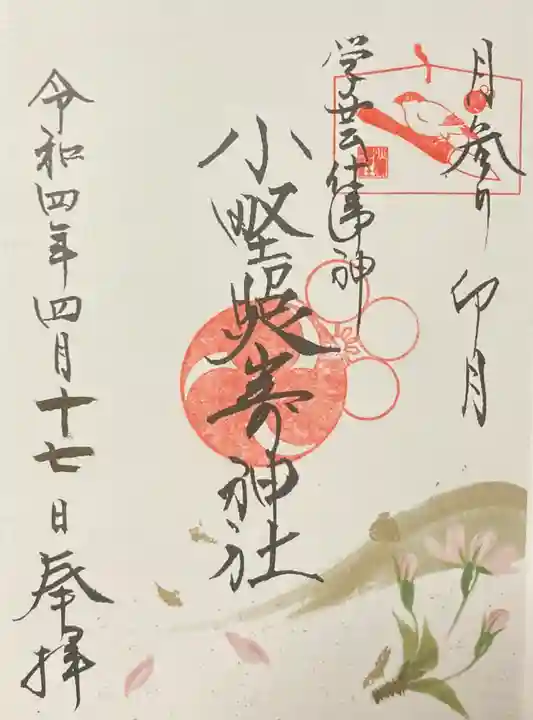 月参り 卯月
学芸仕事神
小野照崎神社
令和四年四月十七日奉拝